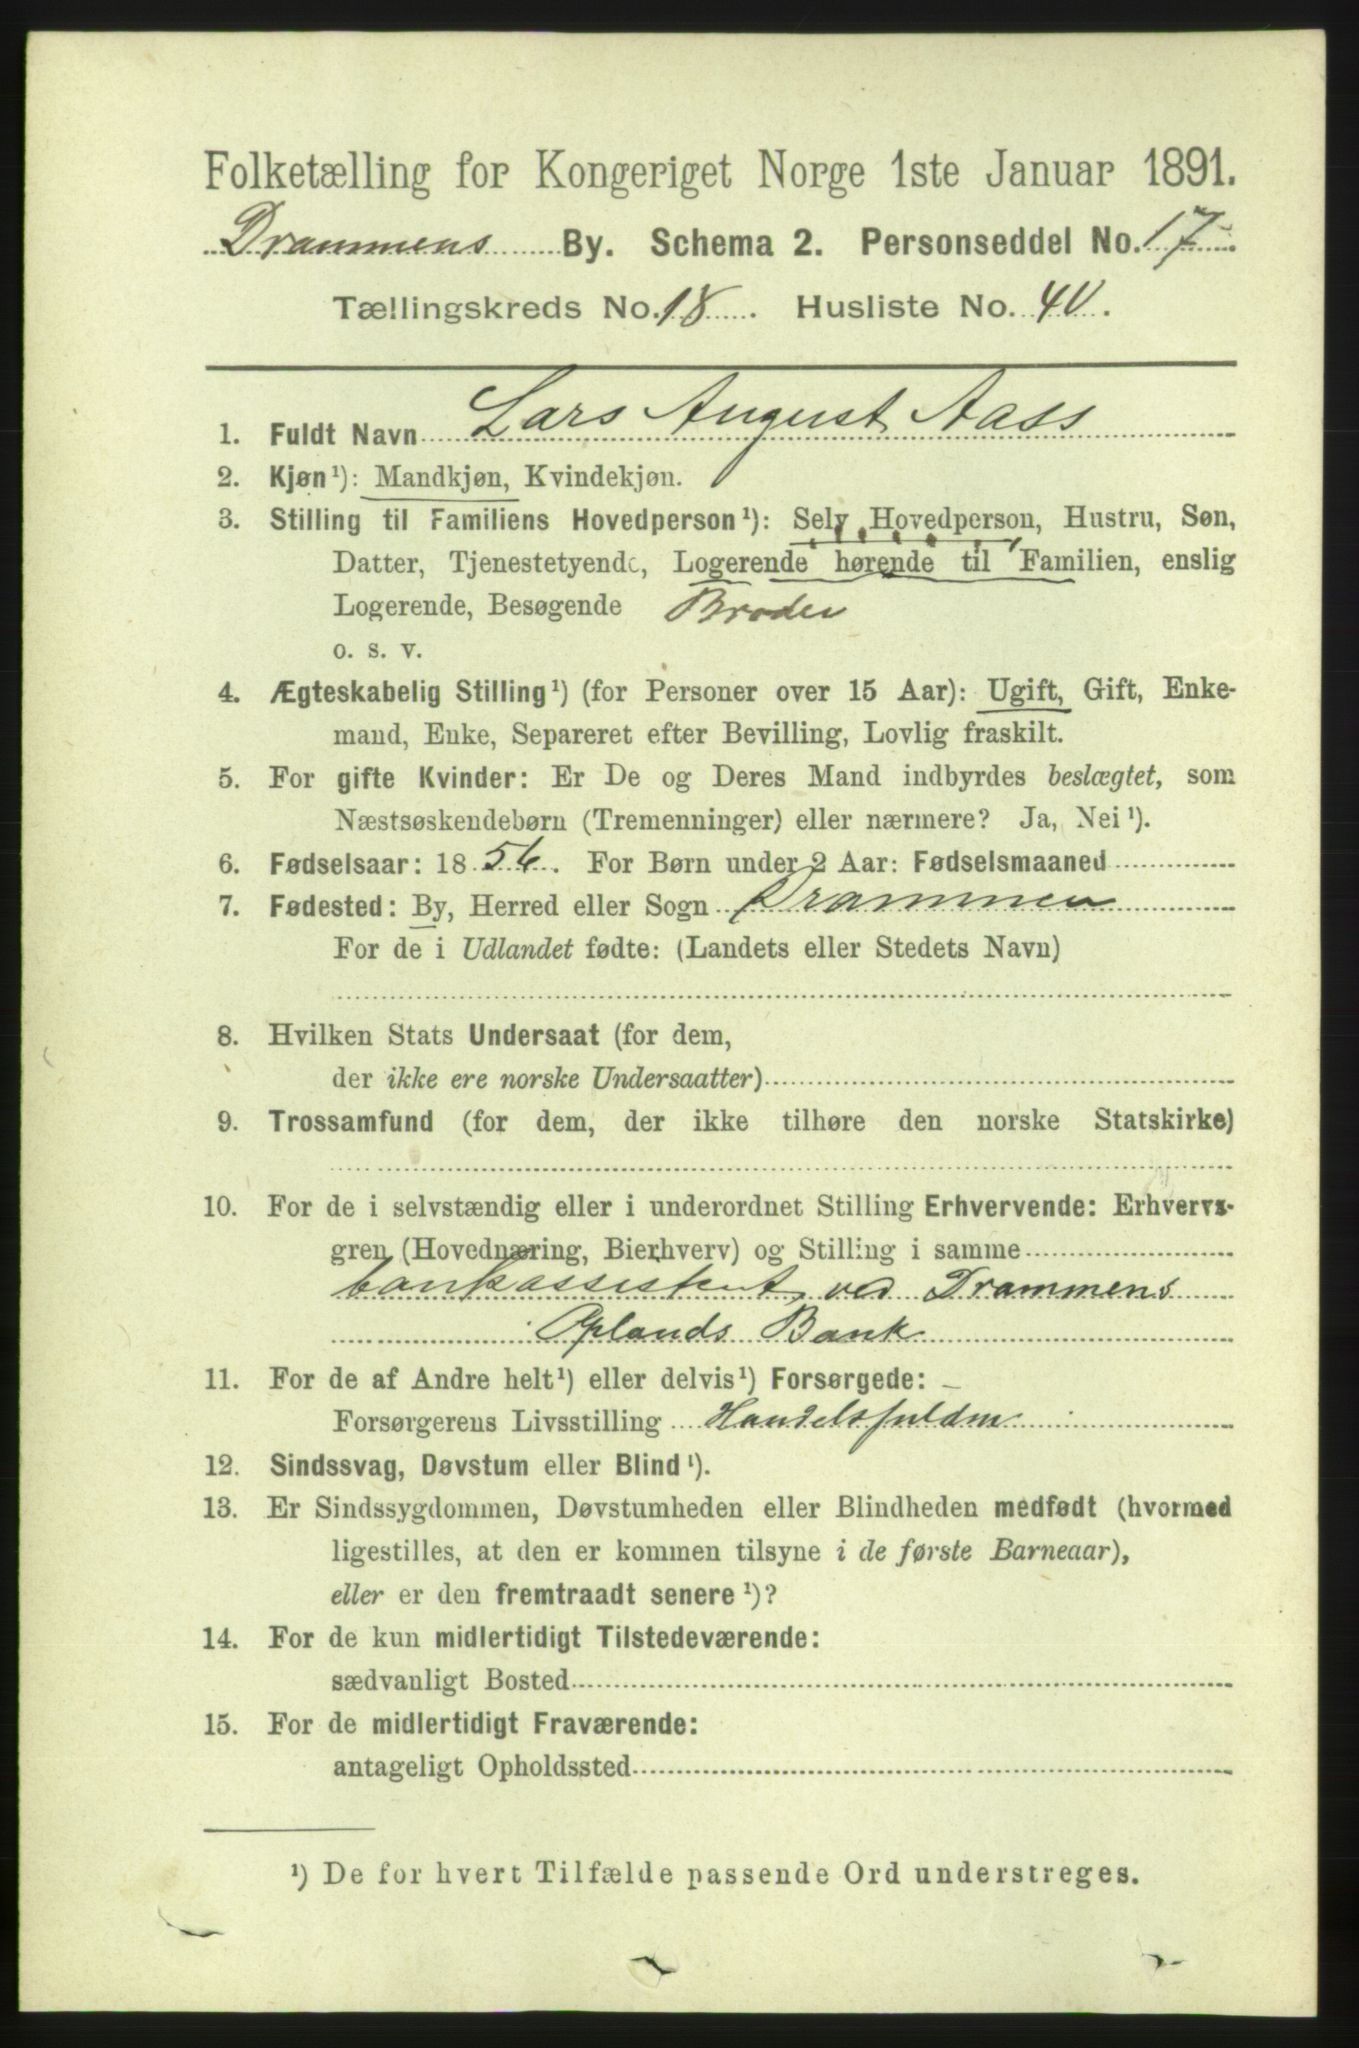 Folketælling for Kongeriget Norge 1ste Januar 1891.
Drammens By. Schema 2. Personseddel No. 17.
Tællingskreds No. 18. Husliste No. 40.
1. Fuldt Navn Lars August Aass
2. Kjøn¹): Mandkjøn, Kvindekjøn.
3. Stilling til Familiens Hovedperson¹): Selv Hovedperson, Hustru, Søn,
Datter, Tjenestetyende, Logerende hørende til Familien, enslig
Logerende, Besøgende Broder
o. s. v.
4. Ægteskabelig Stilling¹) (for Personer over 15 Aar): Ugift, Gift, Enke-
mand, Enke, Separeret efter Bevilling, Lovlig fraskilt.
5. For gifte Kvinder: Er De og Deres Mand indbyrdes beslægtet, som
Næstsøskendebørn (Tremenninger) eller nærmere? Ja, Nei¹).
6. Fødselsaar: 1856. For Børn under 2 Aar: Fødselsmaaned
7. Fødested: By, Herred eller Sogn Drammen
For de i Udlandet fødte: (Landets eller Stedets Navn)
8. Hvilken Stats Undersaat (for dem,
der ikke ere norske Undersaatter)
9. Trossamfund (for dem, der ikke tilhøre den norske Statskirke)
10. For de i selvstændig eller i underordnet Stilling Erhvervende: Erhvervs-
gren (Hovednæring, Bierhverv) og Stilling i samme
bankassistent ved Drammens
Oplands Bank
11. For de af Andre helt¹) eller delvis¹) Forsørgede:
Forsørgerens Livsstilling
12. Sindssvag, Døvstum eller Blind¹).
13. Er Sindssygdommen, Døvstumheden eller Blindheden medfødt (hvormed
ligestilles, at den er kommen tilsyne i de første Barneaar),
eller er den fremtraadt senere¹)?
14. For de kun midlertidigt Tilstedeværende:
sædvanligt Bosted
15. For de midlertidigt Fraværende:
antageligt Opholdssted
¹) De for hvert Tilfælde passende Ord understreges.